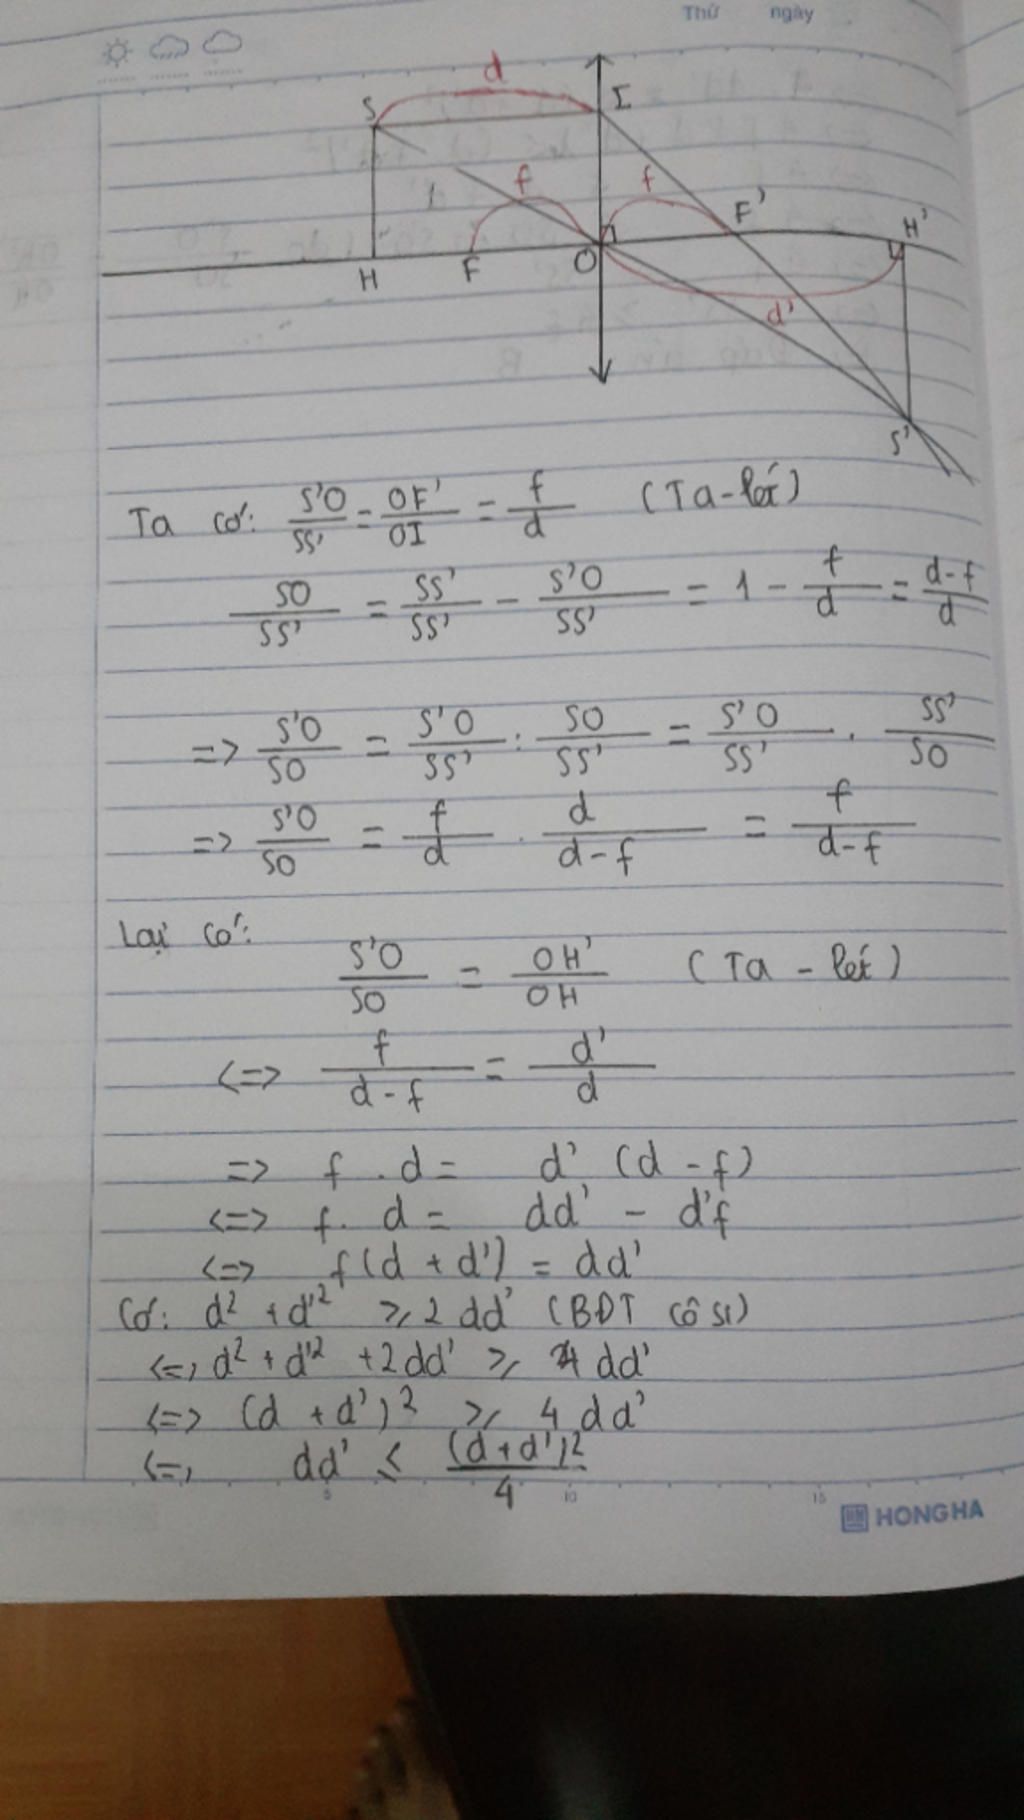 Thứ ngày
d
S I
f f
F' H'
H F O
d'
S'
Ta có: S'O/SS' = OF'/OI = f/d (Ta-lét)
SO/SS' = SS'/SS' - S'O/SS' = 1 - f/d = d-f/d
=> S'O/SO = S'O/SS' : SO/SS' = S'O/SS' . SS'/SO
=> S'O/SO = f/d . d/d-f = f/d-f
Lại có:
S'O/SO = OH'/OH (Ta-lét)
<=> f/d-f = d'/d
=> f . d = d' (d - f)
<=> f. d = dd' - d'f
<=> f(d + d') = dd'
Có: d² + d'² ≥ 2 dd' (BĐT cô si)
<=> d² + d'² + 2dd' ≥ 4 dd'
<=> (d + d')² ≥ 4 dd'
<=> dd' ≤ (d+d')²/4
5 10 15
HONG HA